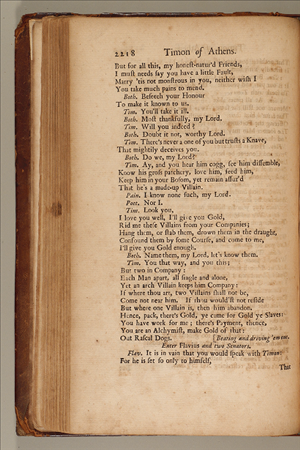 2218 Timon of Athens.
But for all this, my honest-natur'd Friends,
I must needs say you have a little Fault,
Marry 'tis not monstrous in you, neither wish I
You take much pains to mend.
Both. Beseech your Honour
To make it known to us.
Tim. You'll take it ill.
Both. Most thankfully, my Lord.
Tim. Will you indeed?
Both. Doubt it not, worthy Lord.
Tim. There's never a one of you but trusts a Knave,
That mightily deceives you.
Both. Do we, my Lord?
Tim. Ay, and you hear him cogg, see him dissemble,
Know his gross patchery, love him, feed him,
Keep him in your Bosom, yet remain assur'd
That he's a made-up Villain.
Pain. I know none such, my Lord.
Poet. Nor I.
Tim. Look you,
I love you well, I'll give you Gold,
Rid me these Villains from your Companies;
Hang them, or stab them, drown them in the draught,
Confound them by some Course, and come to me,
I'll give you Gold enough.
Both. Name them, my Lord, let's know them.
Tim. You that way, and you this;
But two in Company:
Each Man apart, all single and alone,
Yet an arch Villain keeps him Company:
If where thou art, two Villains shall not be,
Come not near him. If thou would'st not reside
But where one Villain is, then him abandon.
Hence, pack, there's Gold, ye came for Gold ye Slaves:
You have work for me; there's Payment, thence,
You are an Alchymist, make Gold of that:
Out Rascal Dogs. [Beating and driving 'em out.
Enter Flavius and two Senators.
Flav. It is in vain that you would speak with Timon:
For he is set so only to himself,
That